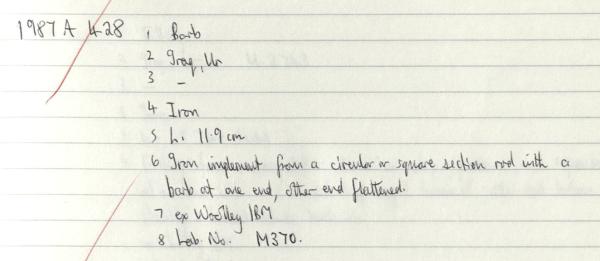 1987 A 428 1 Barb
2 Iraq, Ur
3 -
4 Iron
5 L. 11.9 cm
6 Iron implement from a circular or square section rod with a
barb at one end, other end flattened.
7 ex Woolley / BM
8 Lab. No. M370.